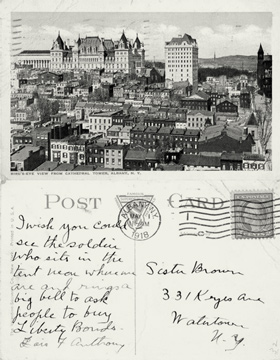 BIRD'S-EYE VIEW FROM CATHEDRAL TOWER, ALBANY, N. Y.
POST CARD
ALBANY
MAY
1918
N.Y.
I wish you could
see the soldier
who sits in the
tent near where we
are and rings a
big bill to ask
people to buy
Liberty Bonds.
Lois F Anthony
Sister Brown
331 Keyes Ave
Watertown
N.Y.